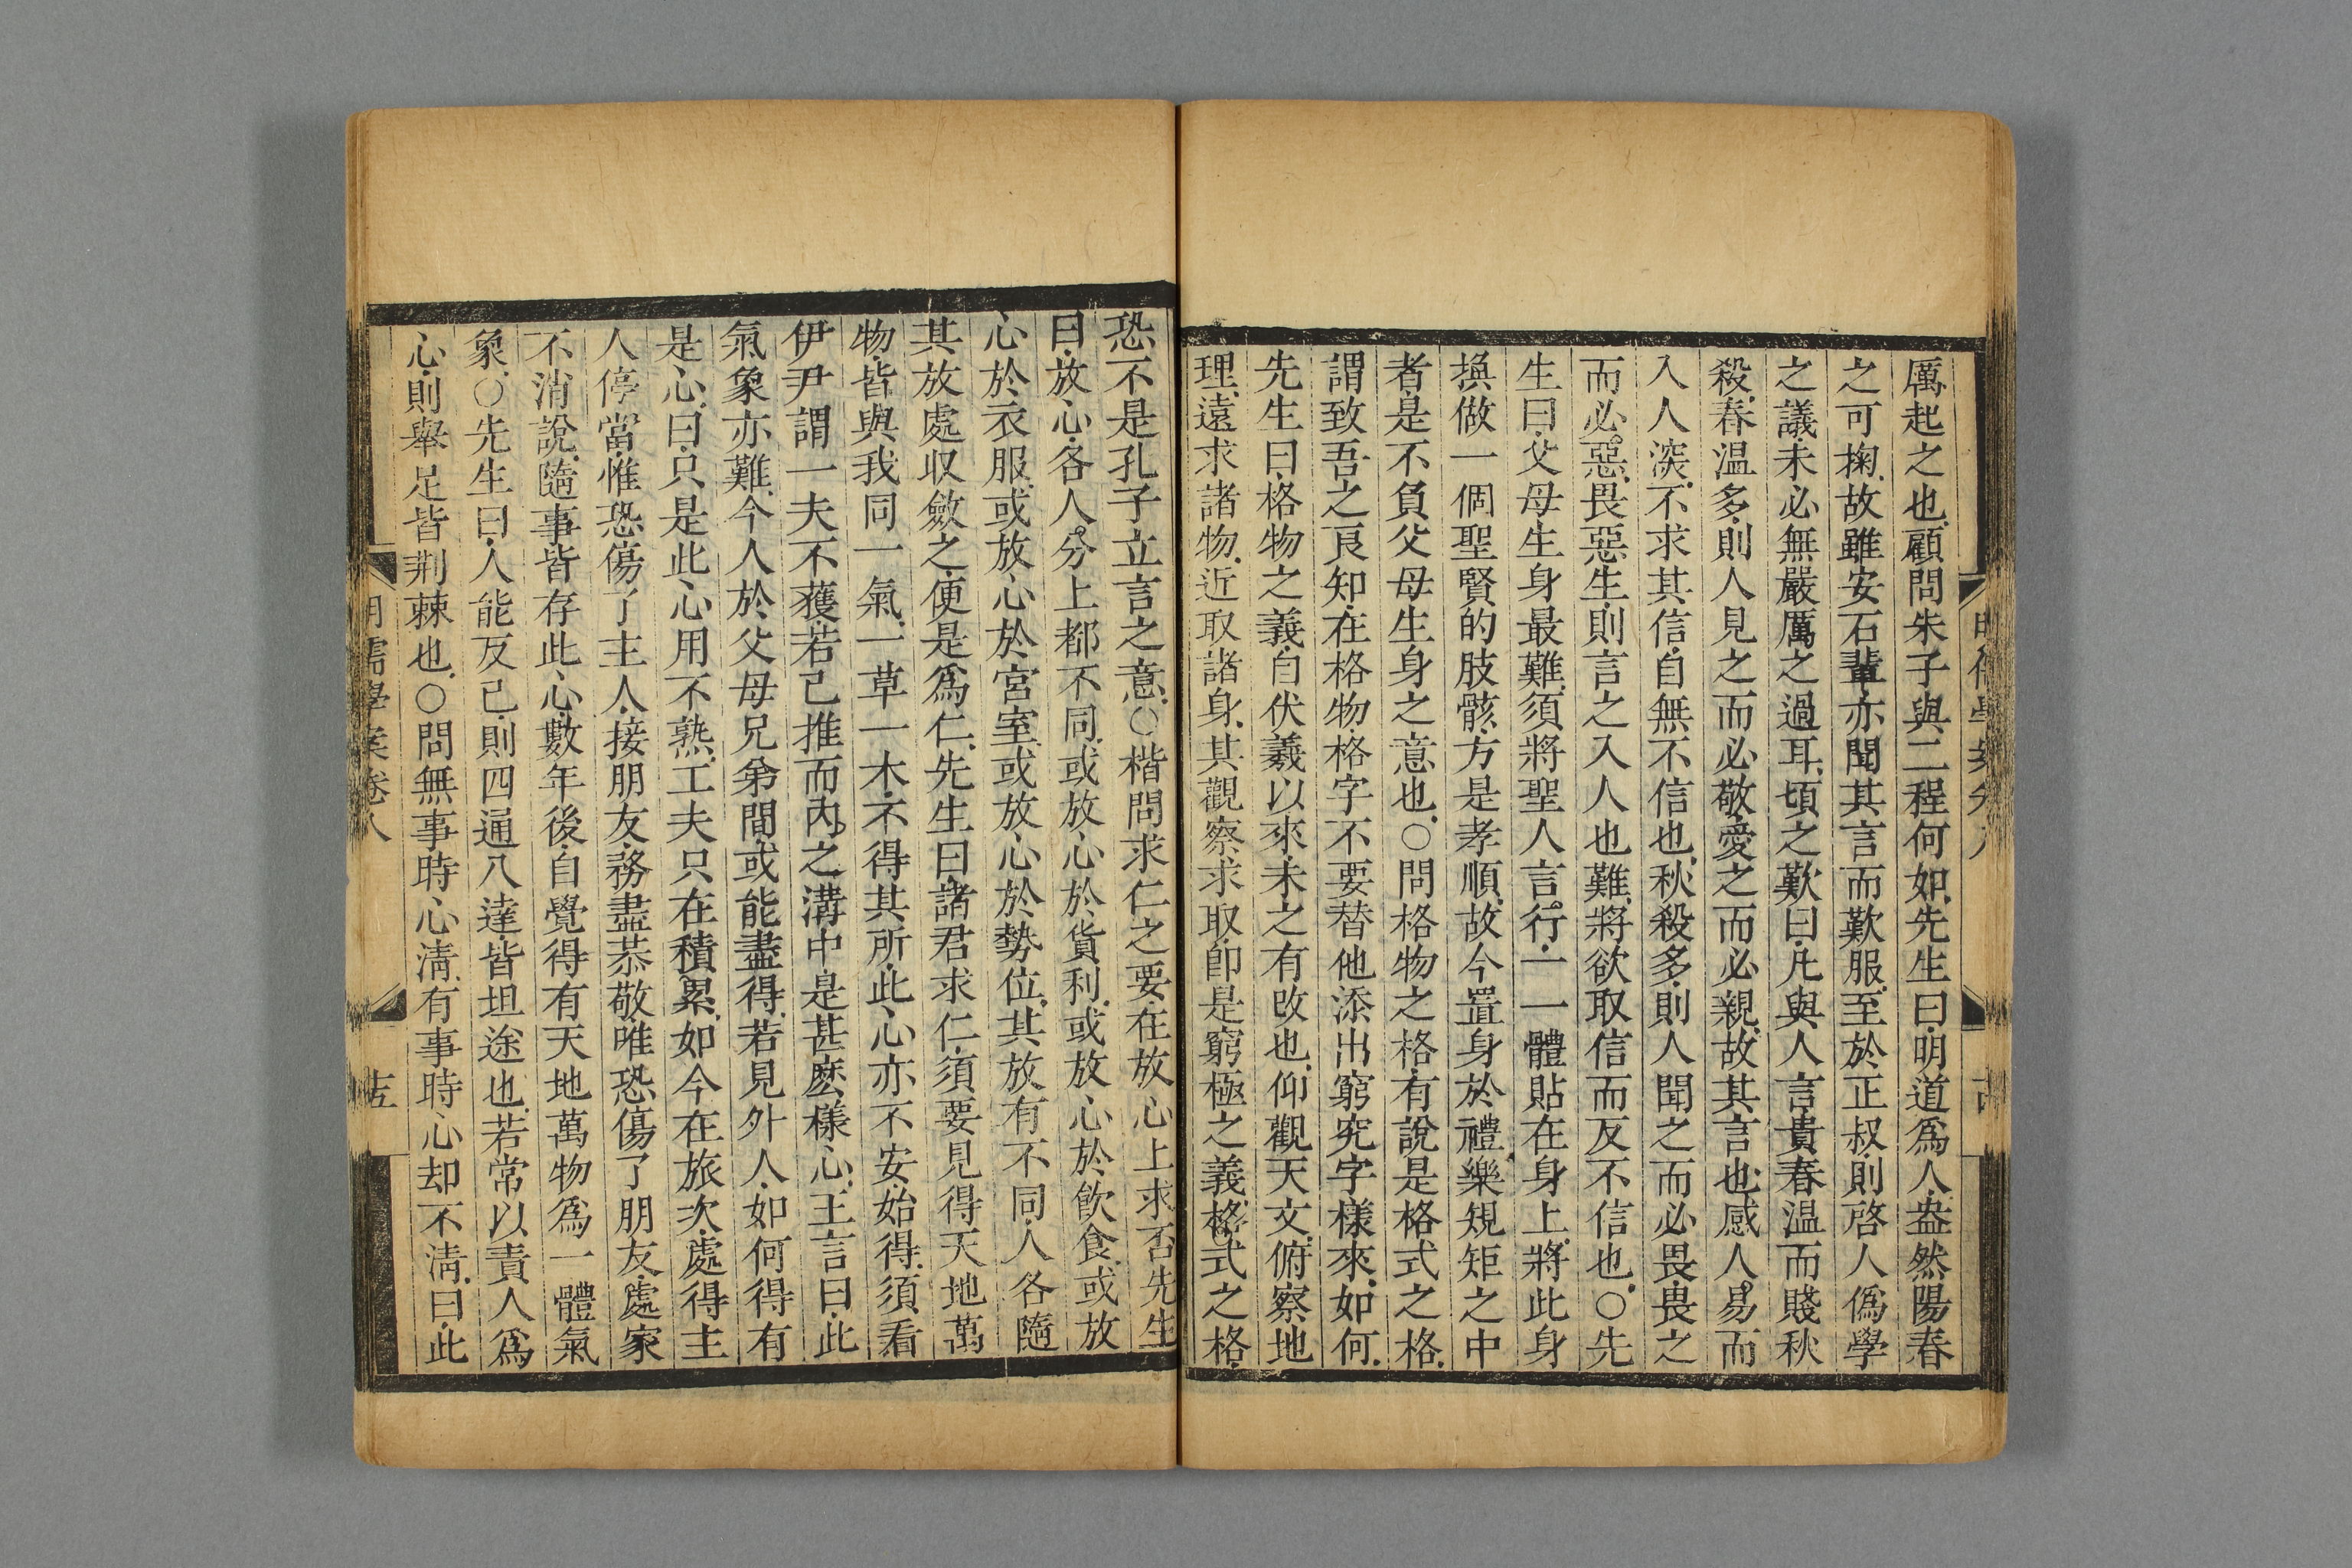 厲起之也顧問朱子與二程何如先生曰明道爲人盎然陽春
之可掬故雖安石輩亦聞其言而歎服至於正叔則啓人僞學
之議未必無嚴厲之過耳頃之歎曰凡與人言貴春温而賤秋
殺春温多則人見之而必敬愛之而必親故其言也感人易而
入人深不求其信自無不信也秋殺多則人聞之而必畏畏之
而必惡畏惡生則言之入人也難將欲取信而反不信也○先
生曰父母生身最難須將聖人言行一一體貼在身上將此身
換做一個聖賢的肢骸方是孝順故今置身於禮樂規矩之中
者是不負父母生身之意也○問格物之格有說是格式之格
謂致吾之良知在格物格字不要替他添出窮究字樣來如何
先生曰格物之義自伏羲以來未之有改也仰觀天文俯察地
理遠求諸物近取諸身其觀察求取卽是窮極之義格式之格
恐不是孔子立言之意○楷問求仁之要在放心上求否先生
曰放心各人分上都不同或放心於貨利或放心於飲食或放
心於衣服或放心於宮室或放心於勢位其放有不同人各隨
其放處収斂之便是爲仁先生曰諸君求仁須要見得天地萬
物皆與我同一氣一草一木不得其所此心亦不安始得須看
伊尹謂一夫不獲若己推而內之溝中是甚麼樣心王言曰此
氣象亦難今人於父母兄弟間或能盡得若見外人如何得有
是心曰只是此心用不熟工夫只在積累如今在旅次處得主
人停當惟恐傷了主人接朋友務盡恭敬唯恐傷了朋友處家
不消說隨事皆存此心數年後自覺得有天地萬物爲一體氣
象○先生曰人能反己則四通八達皆坦途也若常以責人爲
心則舉足皆荆棘也○問無事時心淸有事時心却不淸曰此
明儒學案卷八